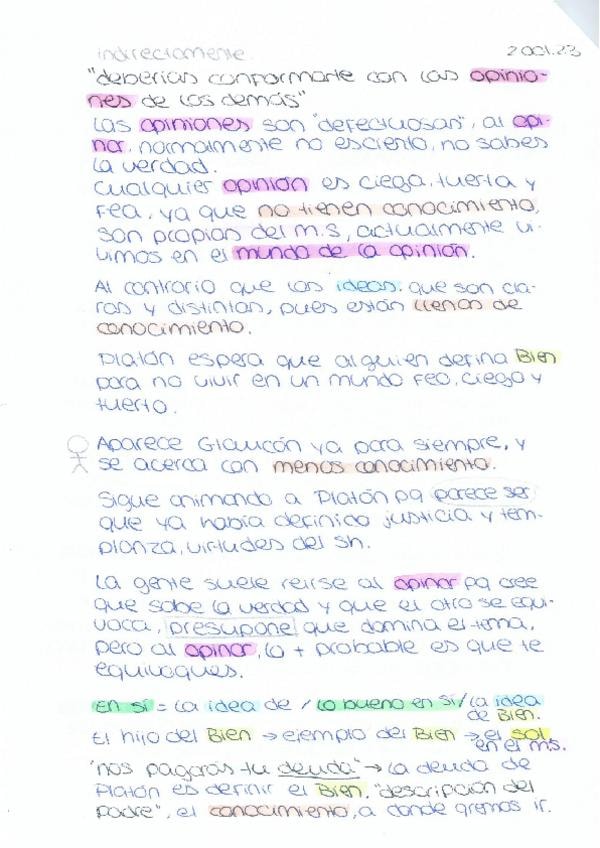 indirectamente. 2001.23
"deberías conformarte con las opinio-
nes de los demás"
Las opiniones son "defectuosas", al opi-
nar, normalmente no es cierto, no sabes
la verdad.
Cualquier opinión es ciega, tuerta y
fea, ya que no tienen conocimiento,
son propias del m.s, actualmente vi-
vimos en el mundo de la opinión.
Al contrario que las ideas, que son cla-
ras y distintas, pues están llenas de
conocimiento.
Platón espera que alguien defina Bien
para no vivir en un mundo feo, ciego y
tuerto.
Aparece Glaucón ya para siempre, y
se acerca con menos conocimiento.
Sigue animando a Platón pq parece ser
que ya había definido justicia y tem-
planza, virtudes del sh.
La gente suele reirse al opinar pq cree
que sabe la verdad y que el otro se equi-
voca, presupone que domina el tema,
pero al opinar, lo + probable es que te
equivoques.
En sí = La idea de / lo bueno en sí / la idea
de Bien.
El hijo del Bien → ejemplo del Bien → el sol
en el m.s.
"nos pagarás tu deuda" → la deuda de
Platón es definir el Bien. "descripción del
padre", el conocimiento, a donde qremos ir.